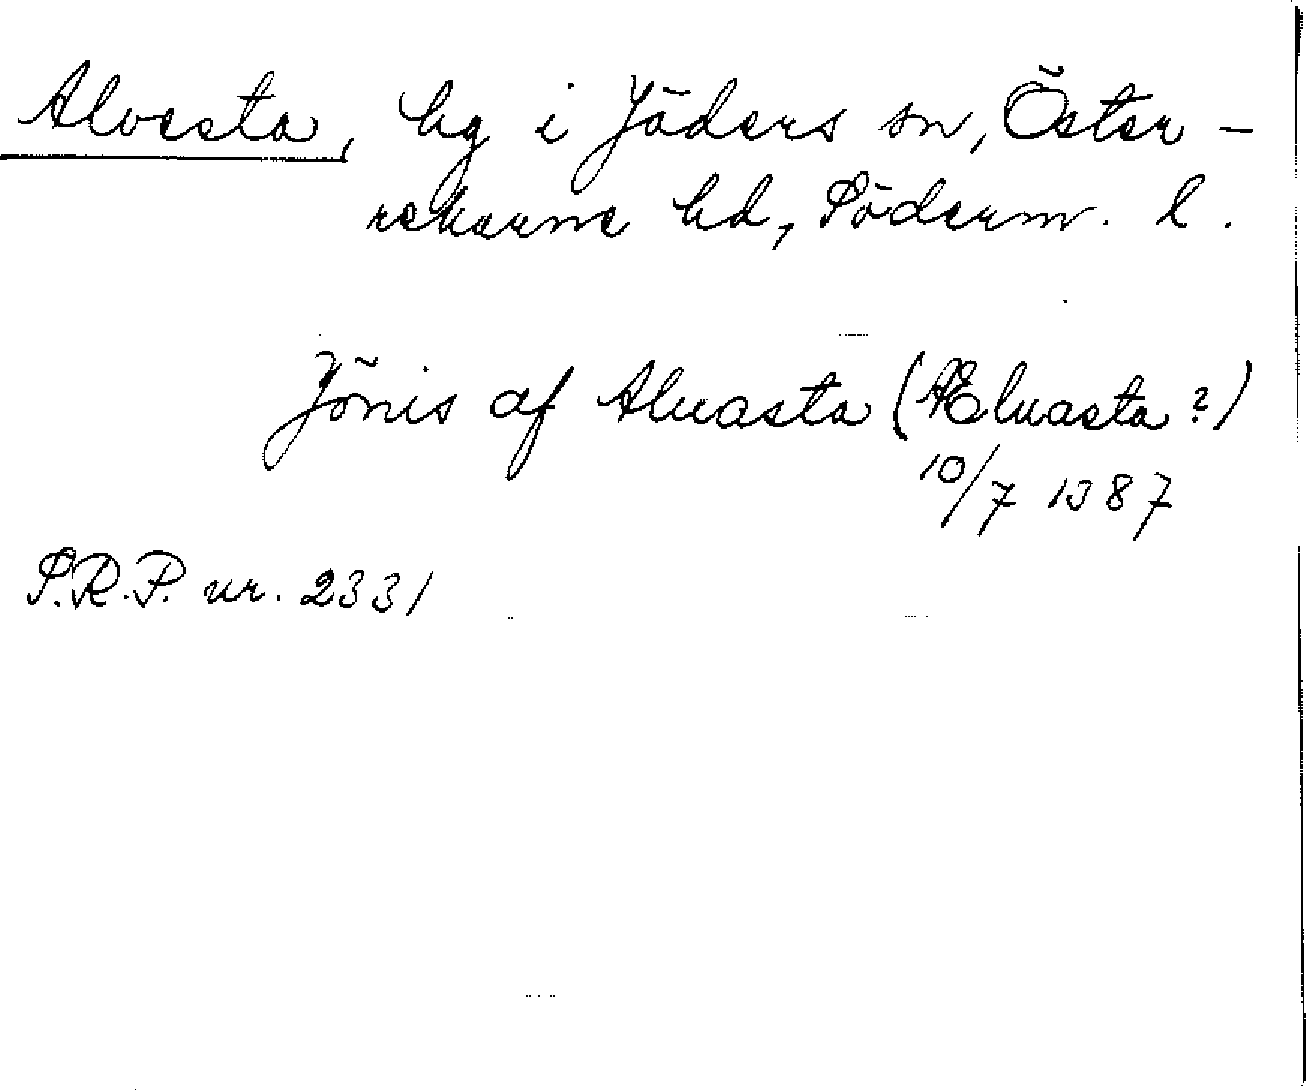 Alvesta, by i Jäders sn, Öster-
rekarne hd, Söderm. l.
Jönis af Aluasta (Æluasta?)
10/7 1387
S.R.P. nr. 2331